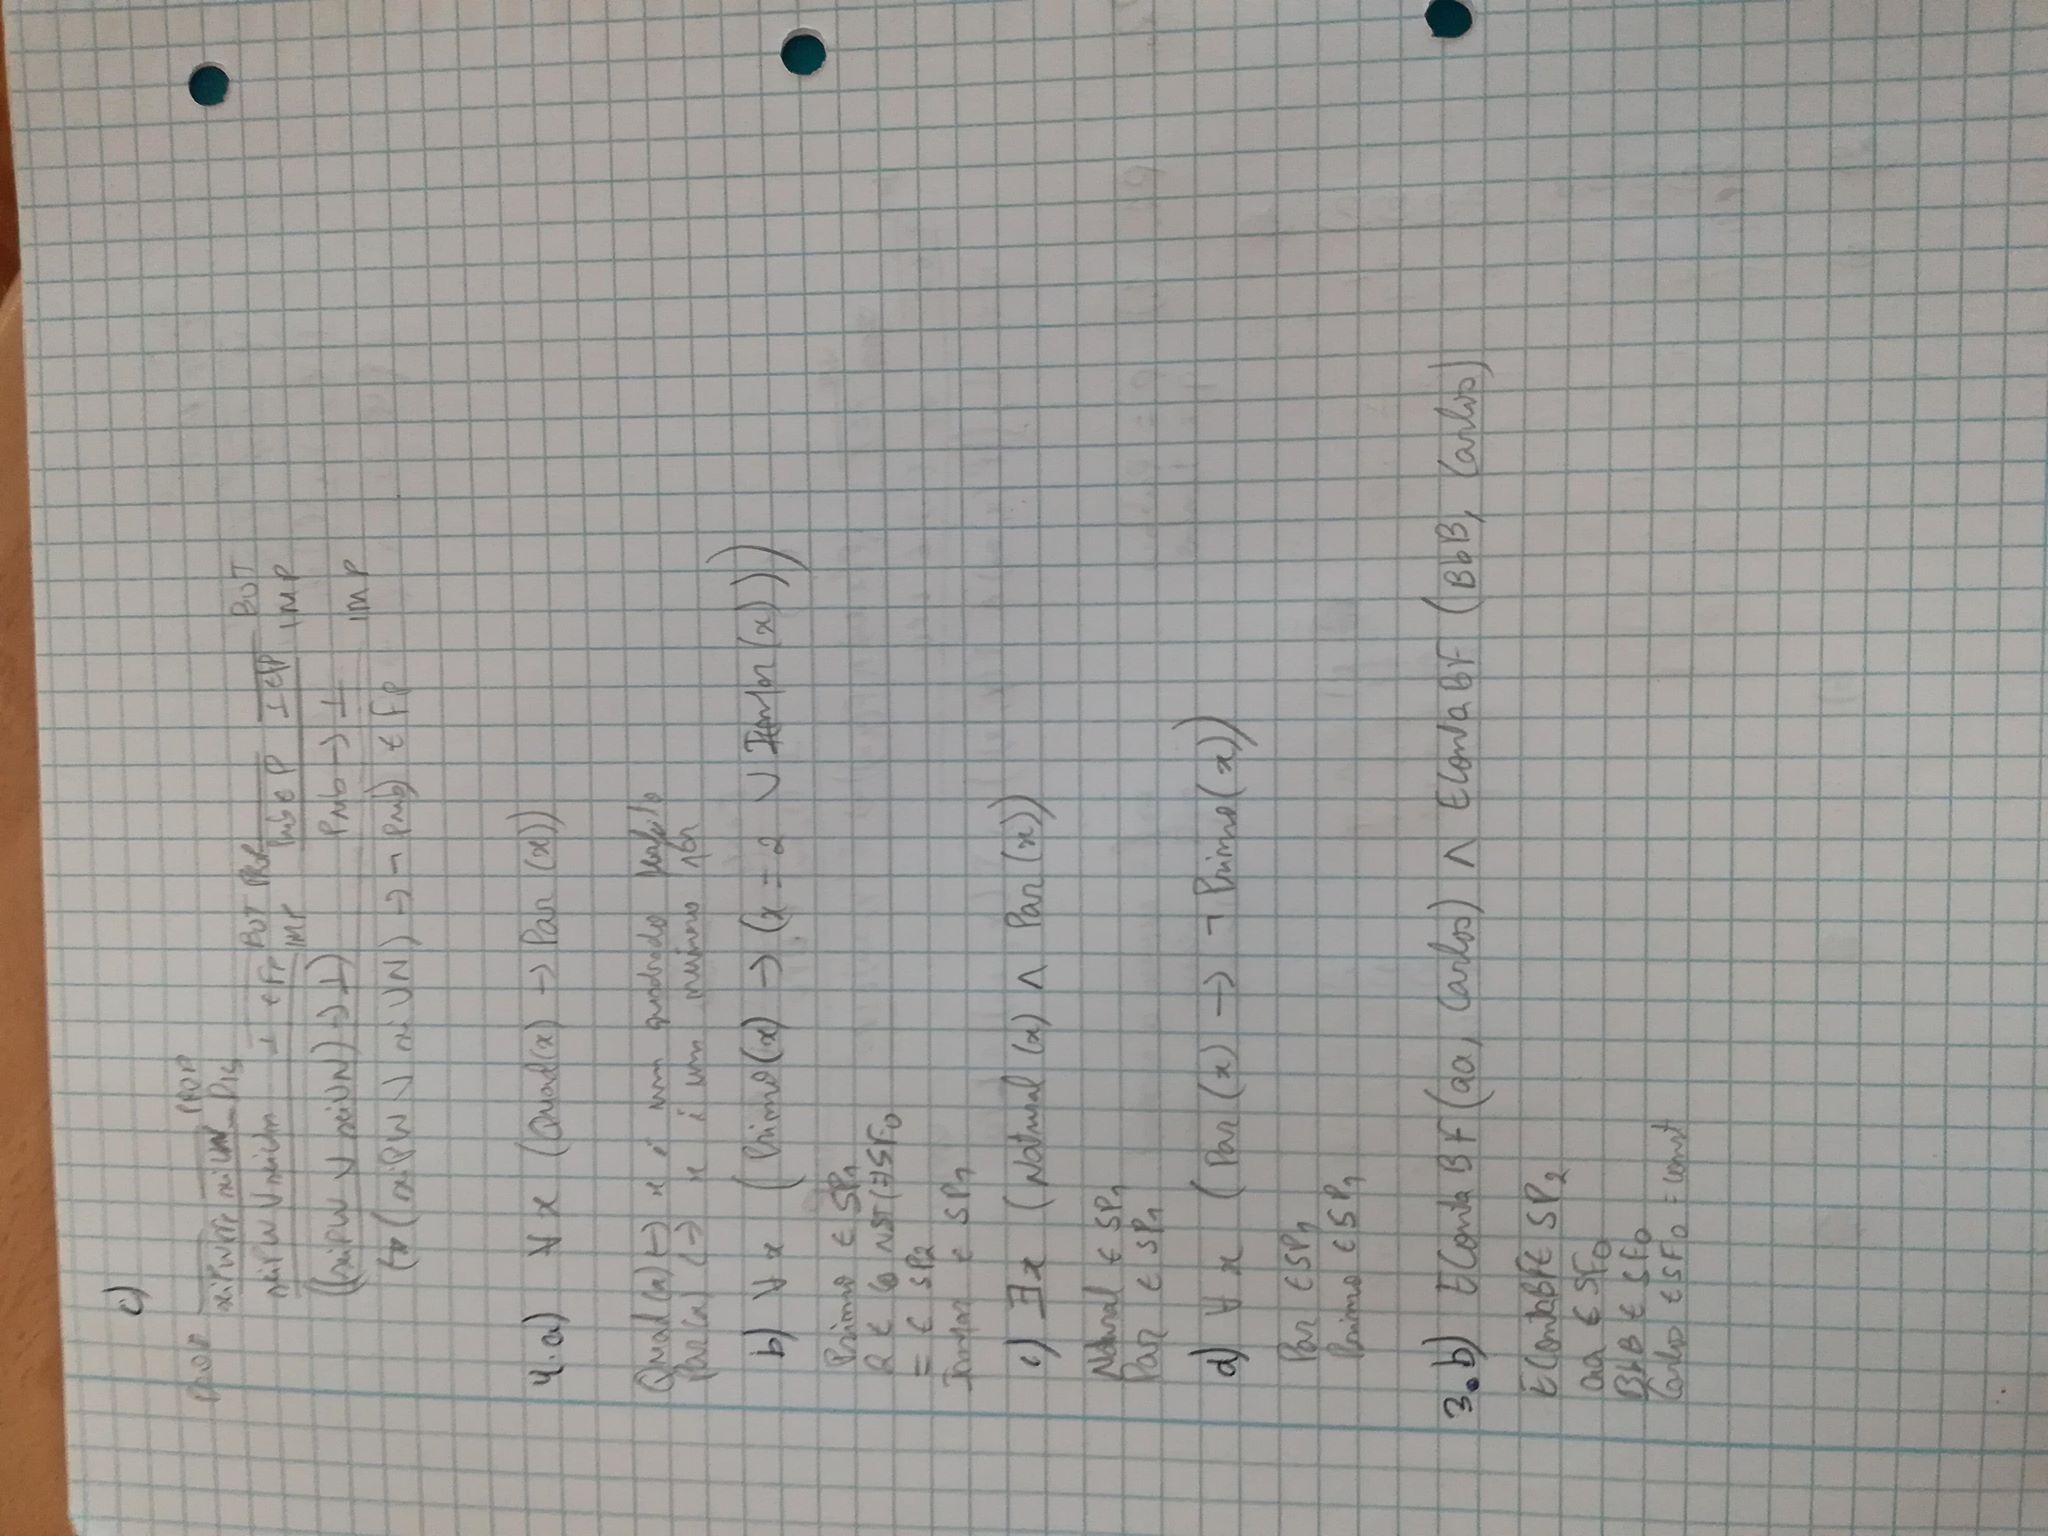 c)
PROP PROP
niPW ∨ niUN DIS ⊥ ∈ FP BOT PROP BOT
((niPW ∨ niUN) → ⊥) IMP Pub ∈ P ⊥ ∈ FP IMP
Pub → ⊥ IMP
(¬(niPW ∨ niUN) → ¬Pub) ∈ FP
4.a) ∀x (Quad(x) → Par(x))
Quad(x) → x é um quadrado perfeito
Par(x) → x é um número par
b) ∀x (Primo(x) → (x = 2 ∨ Impar(x)))
Primo ∈ SP1
2 ∈ CONST (∃ SF0
= ∈ SP2
Impar ∈ SP1
c) ∃x (Natural(x) ∧ Par(x))
Natural ∈ SP1
Par ∈ SP1
d) ∀x (Par(x) → ¬Primo(x))
Par ∈ SP1
Primo ∈ SP1
3.b) EContaBF(aa, Carlos) ∧ EContaBF(BbB, Carlos)
EContaBF ∈ SP2
aa ∈ SF0
BbB ∈ SF0
Carlos ∈ SF0 = const